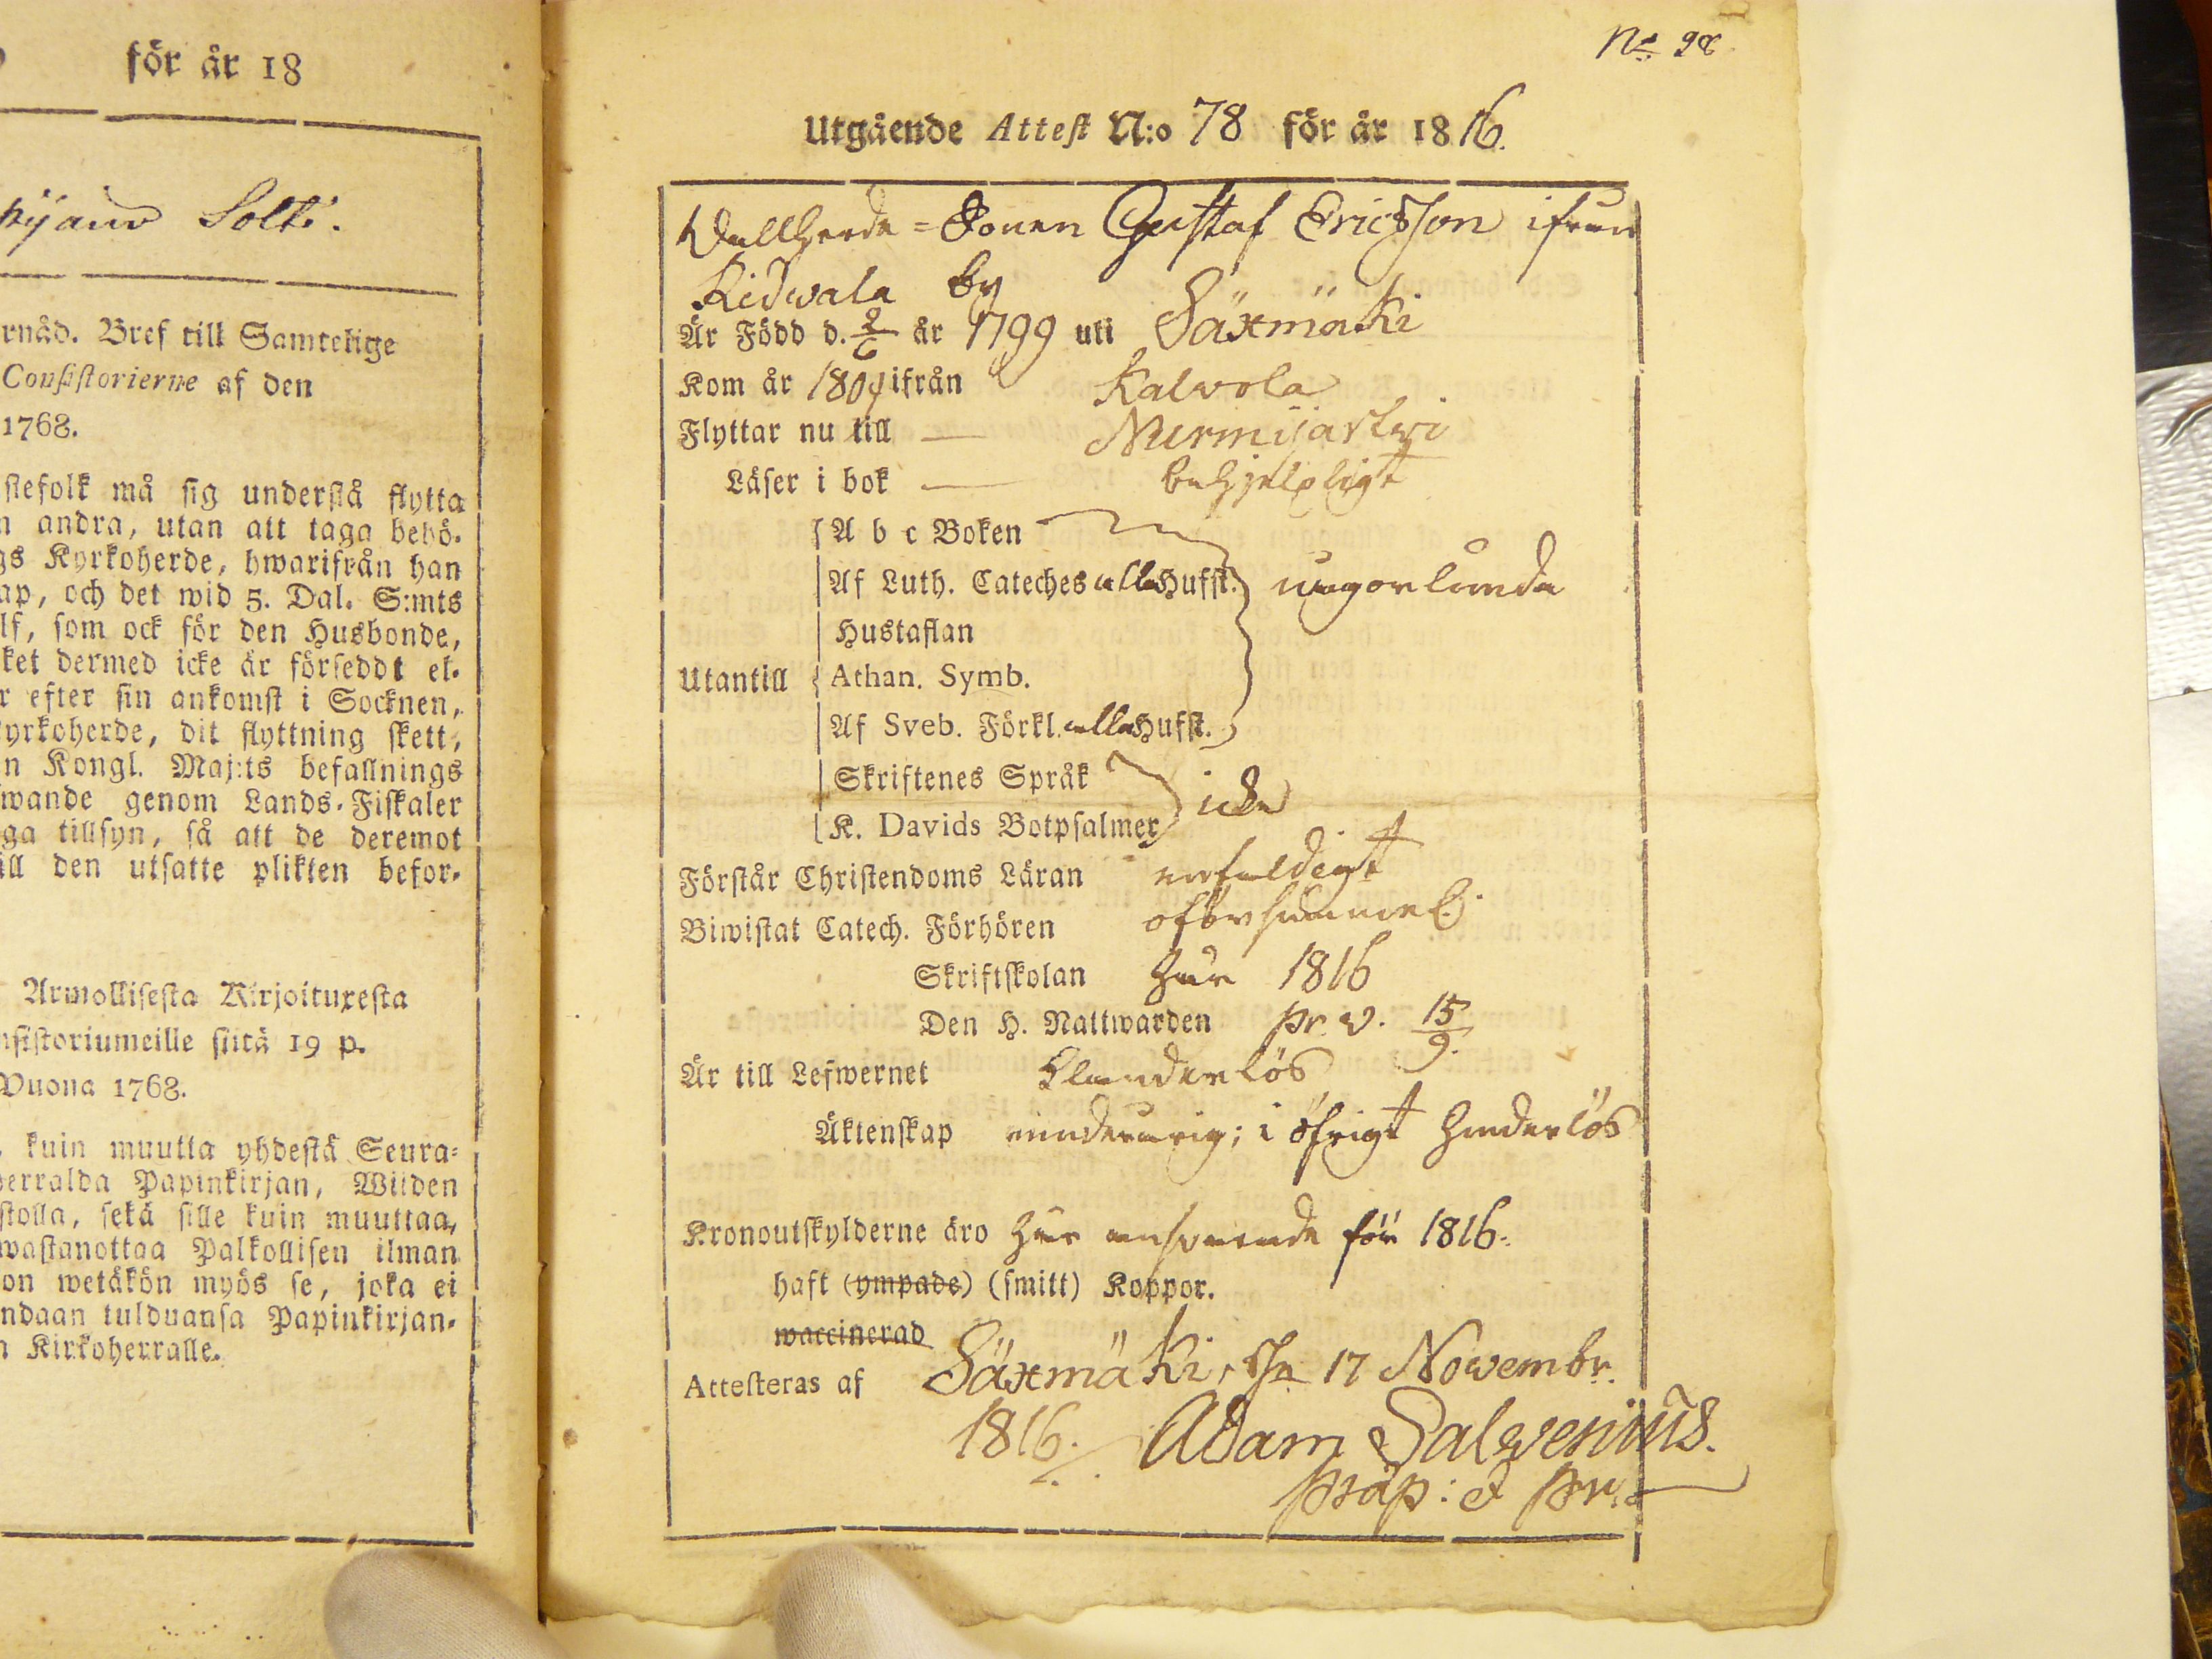 för år 18
Solti.
rnåd. Bref till Samtelige
Consistorierne af den
1768.
stefolk må sig understå flytta
n andra, utan att taga behö-
gs Kyrkoherde, hwarifrån han
ap, och det wid 5. Dal. S:mts
lf, som ock för den Husbonde,
ket dermed icke är förseddt el-
r efter sin ankomst i Socknen,
yrkoherde, dit flyttning skett,
n Kongl. Maj:ts befallnings
wande genom Lands-Fiskaler
ga tillsyn, så att de deremot
ill den utsatte plikten befor-
Armollisesta Kirjoituxesta
nsistoriumeille siitä 19 p.
Vuona 1768.
kuin muutta yhdestä Seura-
herralda Papinkirjan, Wiiden
stolla, sekä sille kuin muuttaa,
wastanottaa Palkollisen ilman
on wetäkön myös se, joka ei
ndaan tulduansa Papinkirjan-
n Kirkoherralle.
No 98
Utgående Attest N:o 78 för år 1816.
Wallherde-Sonen Gustaf Ericsson ifrån
Ridwala by
Är Född d. 2/6 år 1799 uti Säxmäki
Kom år 1804 ifrån Kalvola
Flyttar nu till — Nurmijärwi
Läser i bok — behjelpligt
A b c Boken
Af Luth. Cateches alla Hufst. någorlunda
Hustaflan
Utantill Athan. Symb.
Af Sveb. Förkl. alla Hufst.
Skriftenes Språk icke
K. Davids Botpsalmer
Förstår Christendoms Läran enfaldigt
Biwistat Catech. Förhören oförsummel.
Skriftskolan här 1816
Den H. Nattwarden pr. v. 15/9.
Är till Lefwernet Klanderlös
Äktenskap minderårig; i öfrigt hinderlös
Kronoutskylderne äro här ansvarade för 1816.
haft (ympade) (smitt) Koppor.
waccinerad
Attesteras af Säxmäki, d. 17 Novembr.
1816. Adam Salvenius.
Präp: & Pr.